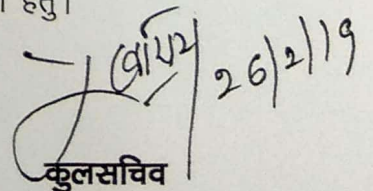 हेतु।
26/2/19
कुलसचिव